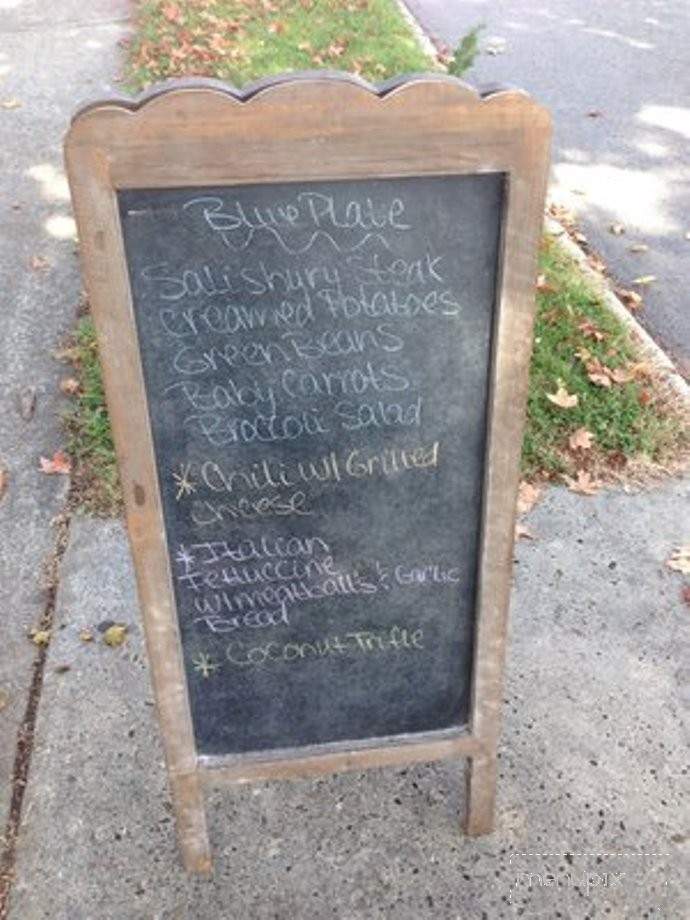 Blue Plate
Salisbury Steak
Creamed Potatoes
Green Beans
Baby Carrots
Broccoli Salad
* Chili w/ Grilled
cheese
* Italian
Fettuccine
w/meatballs & Garlic
Bread
* Coconut Trifle
menupix